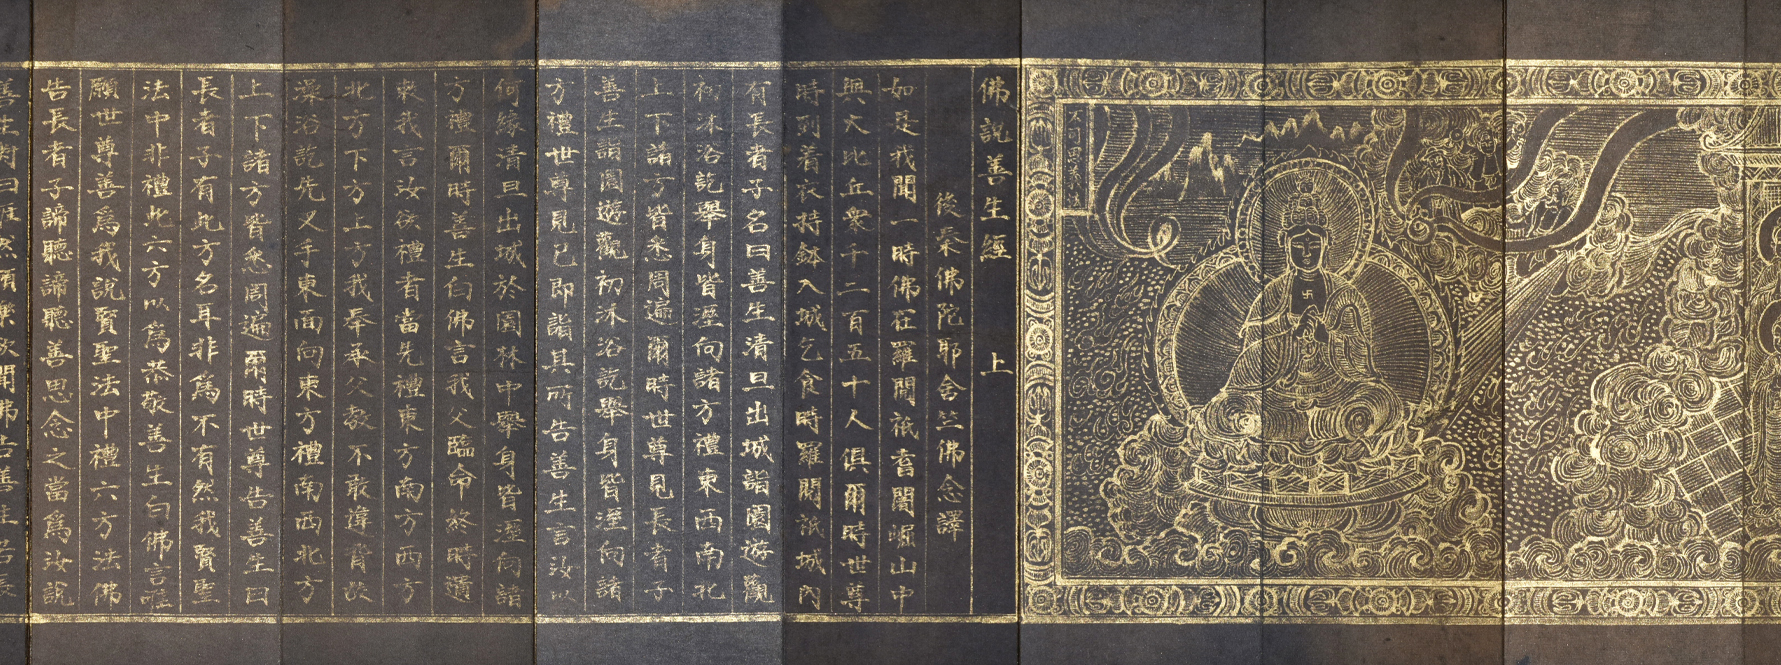 佛說善生經 上
後秦佛陀耶舍竺佛念譯
如是我聞一時佛在羅閱祇耆闍崛山中
與大比丘衆千二百五十人俱爾時世尊
時到着衣持鉢入城乞食時羅閱祇城內
有長者子名曰善生清旦出城詣園遊觀
初沐浴訖舉身皆溼向諸方禮東西南北
上下諸方皆悉周遍爾時世尊見長者子
善生詣園遊觀初沐浴訖舉身皆溼向諸
方禮世尊見已即詣其所告善生言汝以
何緣清旦出城於園林中舉身皆溼向諸
方禮爾時善生白佛言我父臨命終時遺
敕我言汝欲禮者當先禮東方南方西方
北方下方上方我奉承父教不敢違背故
澡浴訖先叉手東面向東方禮南西北方
上下諸方皆悉周遍爾時世尊告善生曰
長者子有此方名耳非爲不有然我賢聖
法中非禮此六方以爲恭敬善生白佛言唯
願世尊善爲我說賢聖法中禮六方法佛
告長者子諦聽諦聽善思念之當爲汝說
善生對曰唯然願樂欲聞佛告善生若長